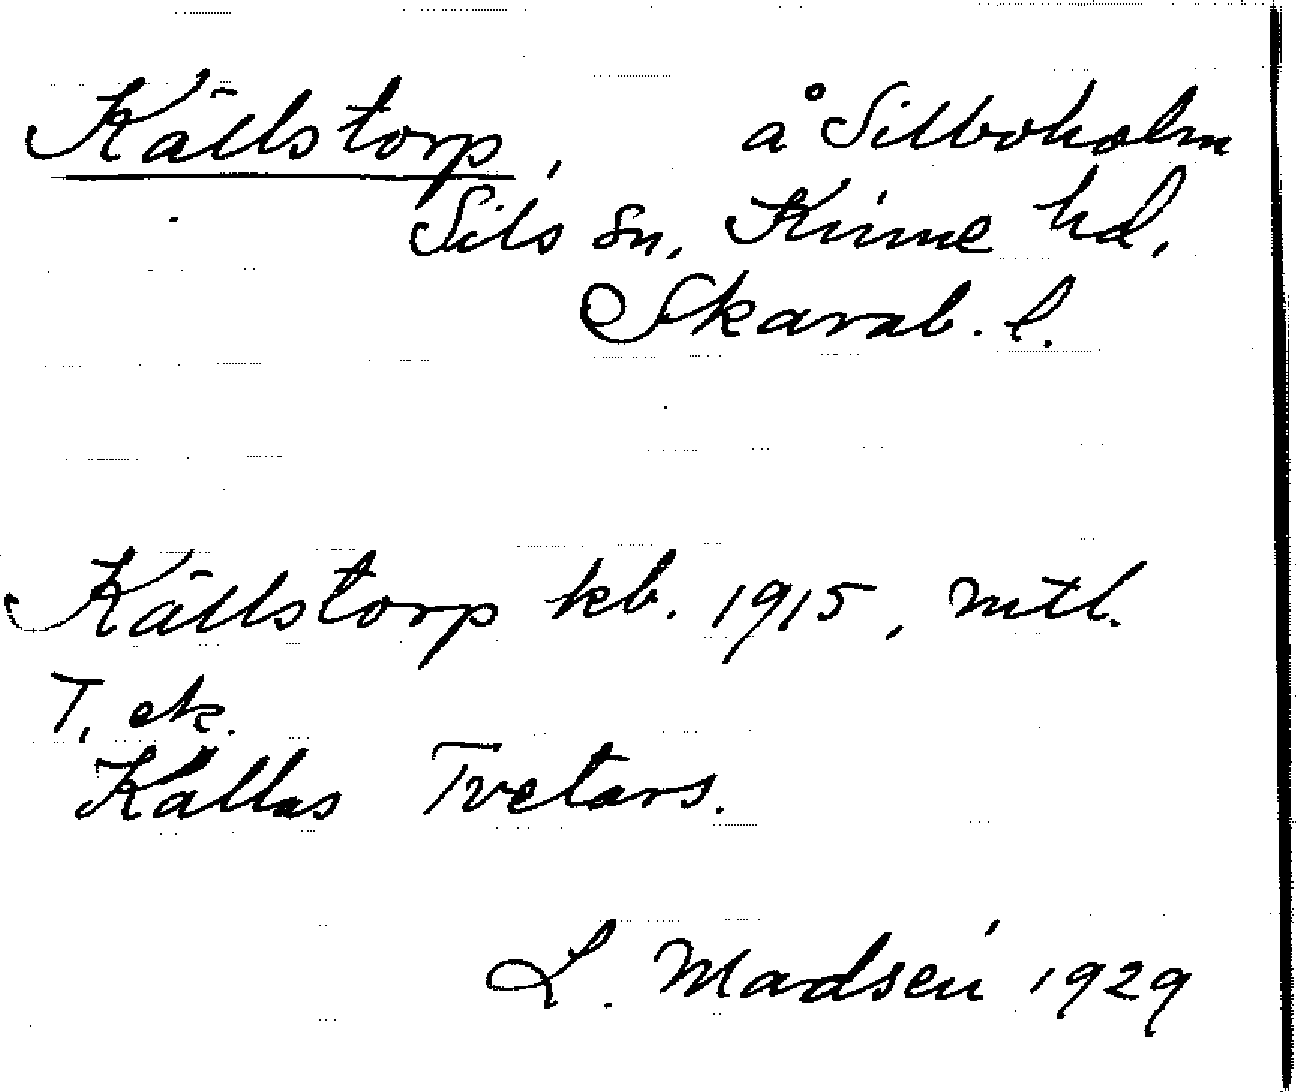 Källstorp, å Silboholm
Sils sn, Kinne hd,
Skarab. l.
Källstorp kb. 1915, mtl.
T, ek.
Kallas Tvetars.
L. Madsén 1929